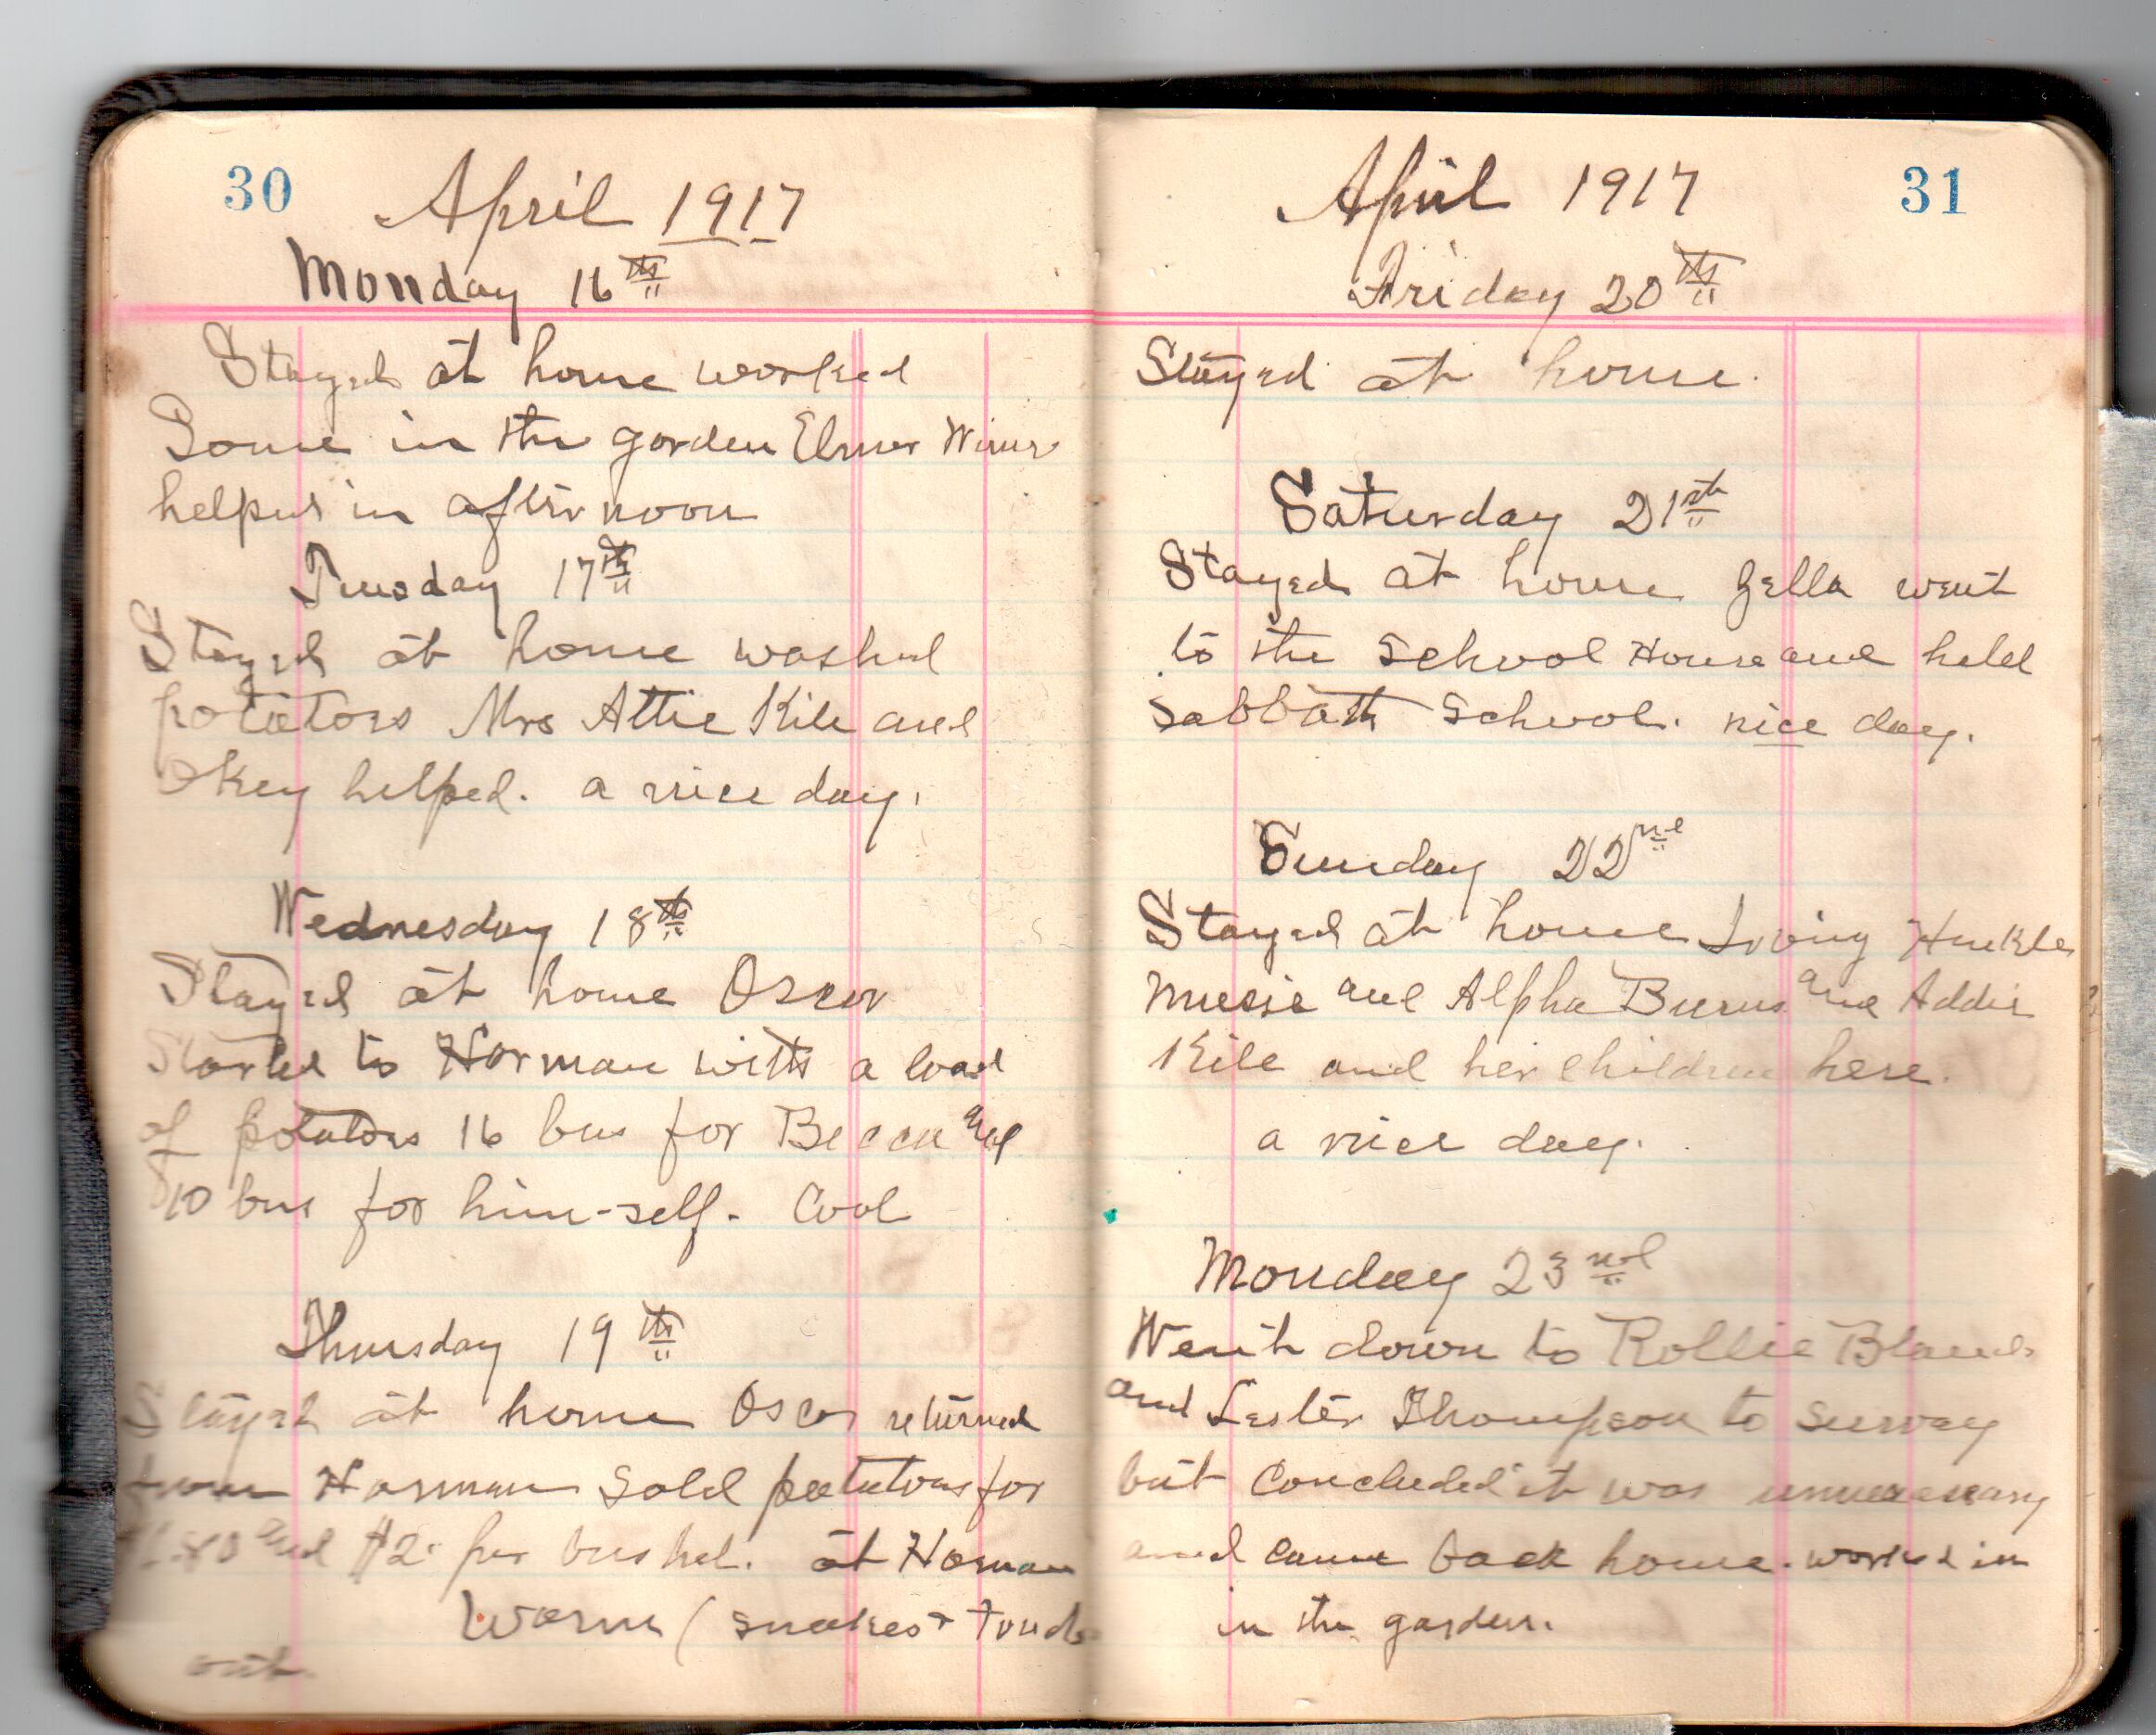 30
April 1917
Monday 16th
Stayed at home worked
Some in the garden Elmer
helped in afternoon
Tuesday 17th
Stayed at home washed
potatoes Mrs Attie Kile and
Okey helped. a nice day.
Wednesday 18th
Stayed at home Oscar
Started to Horman with a load
of potatoes 16 bus for and
10 bus for him-self. Cool
Thursday 19th
Stayed at home Oscar returned
from Harman Sold potatoes for
and $2. per bushel. at Horman
Warm (snakes + toads
out.
31
April 1917
Friday 20th
Stayed at home.
Saturday 21st
Stayed at home Zella went
to the School House and held
Sabbath School. nice day.
Sunday 22nd
Stayed at home Irving
and Alpha Burns and Addie
Kile and her children here.
a nice day.
Monday 23rd
Went down to Rollie
and Lester Thompson to survay
but concluded it was unnecessary
and came back home. worked in
in the garden.